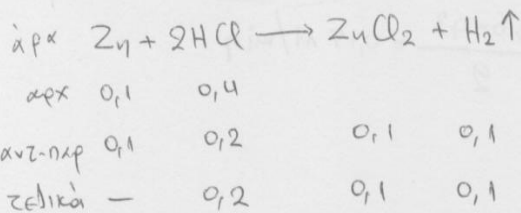 άρα Zn + 2HCl ⟶ ZnCl₂ + H₂↑
αρχ 0,1 0,4
αντ-παρ 0,1 0,2 0,1 0,1
τελικά — 0,2 0,1 0,1